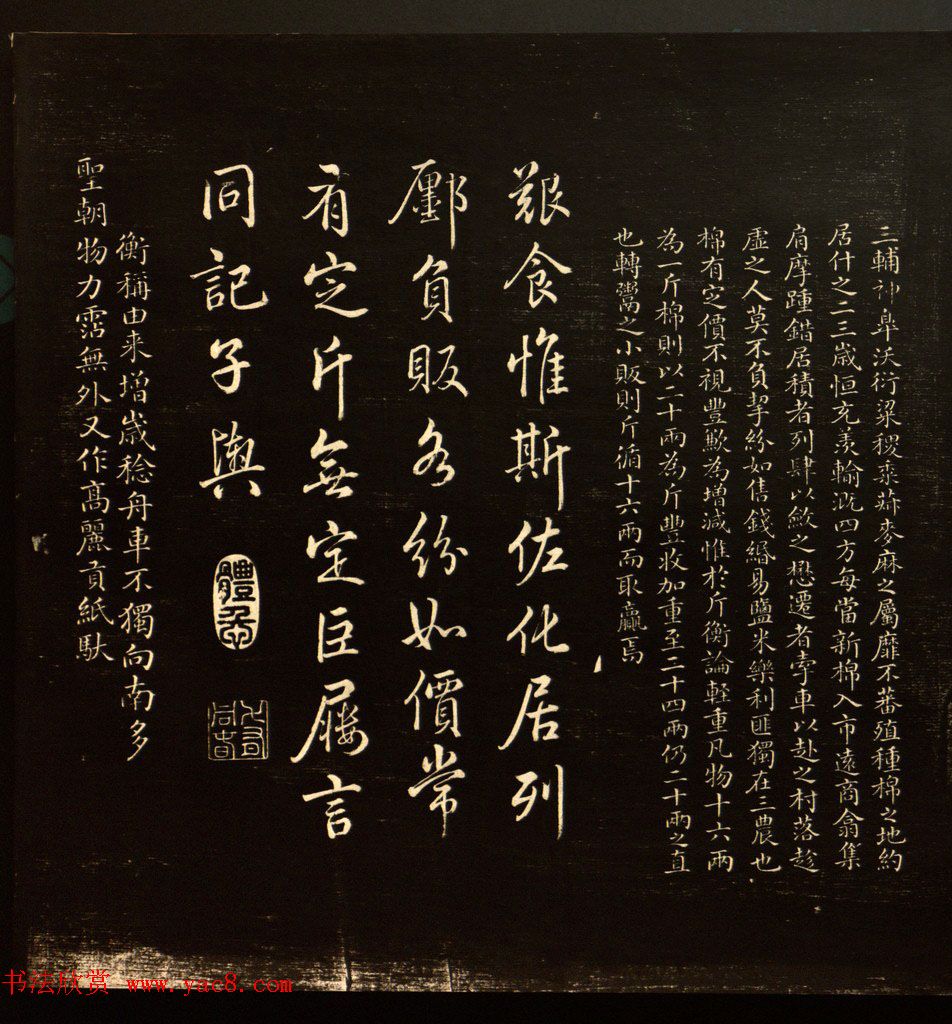 三輔神皋沃衍粱稷黍菽麥麻之屬靡不蕃殖種棉之地約
居什之二三歲恒充羨輸溉四方每當新棉入市遠商翕集
肩摩踵錯居積者列肆以斂之懋遷者牽車以赴之村落趁
虛之人莫不負挈紛如售錢緡易鹽米樂利匪獨在三農也
棉有定價不視豐歉為增減惟於斤衡論輕重凡物十六兩
為一斤棉則以二十兩為斤豐收加重至二十四兩仍二十兩之直
也轉鬻之小販則斤循十六兩而取贏焉
艱食惟斯佐化居列
鄽負販各紛如價常
有定斤無定巨屨言
同記子輿
體
衡稱由来增歲稔舟車不獨向南多
聖朝物力霑無外又作高麗貢紙馱
书法欣赏 www.yac8.com